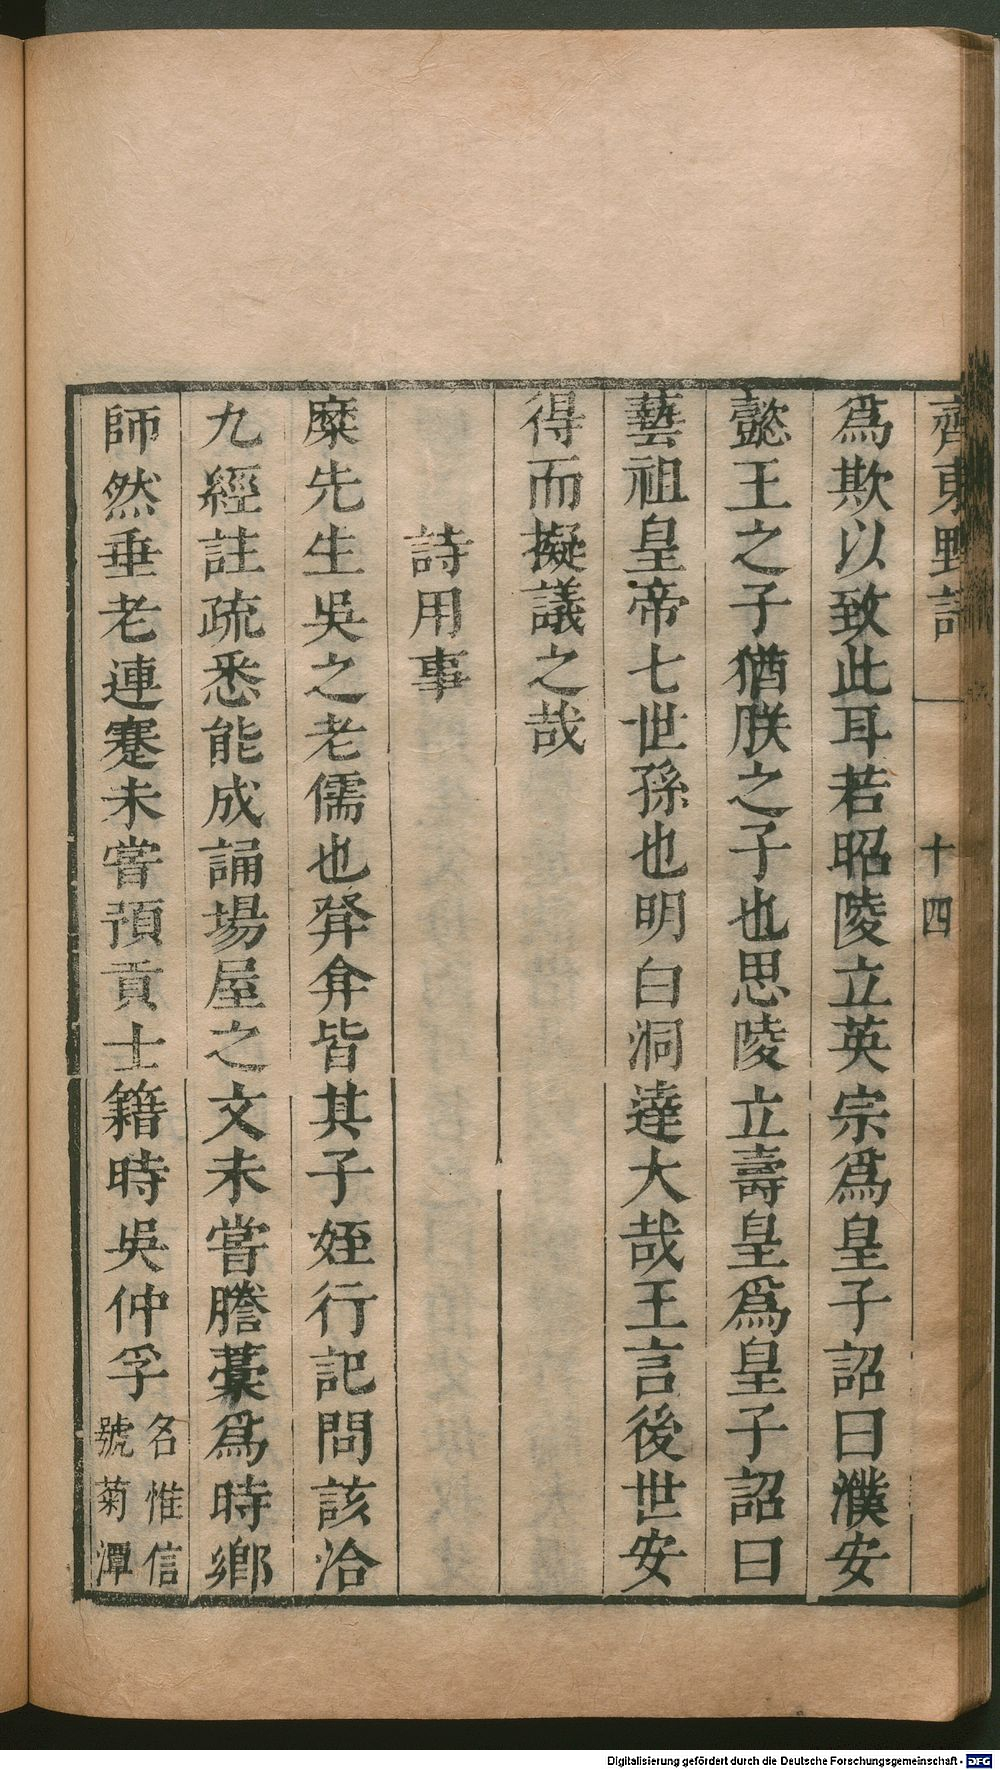 齊東野語 十四
爲欺以致此耳若昭陵立英宗爲皇子詔曰濮安
懿王之子猶朕之子也思陵立壽皇爲皇子詔曰
藝祖皇帝七世孫也明白洞達大哉王言後世安
得而擬議之哉
詩用事
糜先生吳之老儒也弉弇皆其子姪行記問該洽
九經註疏悉能成誦場屋之文未嘗謄藁爲時鄉
師然垂老連蹇未嘗預貢士籍時吳仲孚名惟信號菊潭
Digitalisierung gefördert durch die Deutsche Forschungsgemeinschaft - DFG